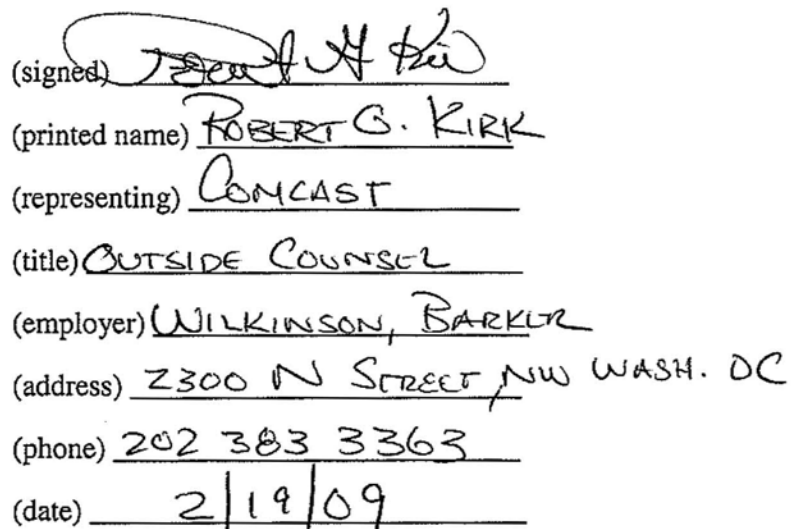 (signed)
(printed name) ROBERT G. KIRK
(representing) COMCAST
(title) OUTSIDE COUNSEL
(employer) WILKINSON, BARKER
(address) 2300 N STREET, NW WASH. DC
(phone) 202 383 3363
(date) 2/19/09